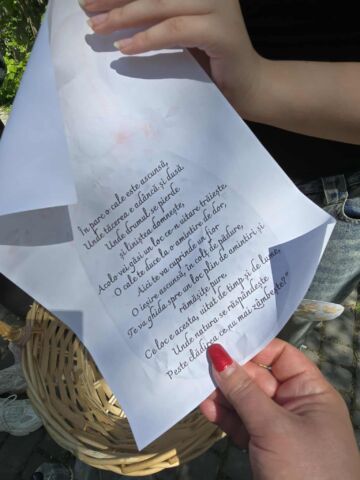 În parc o cale este ascunsă,
Unde tăcerea e adâncă și dusă
Unde drumul se pierde
și liniștea domnește,
Acolo vei găsi un loc ce-n uitare trăiește.
O cale te duce la o amintire de dor,
Aici te va cuprinde un fior
O ieșire ascunsă în colț de pădure,
Te va ghida spre un loc plin de amintiri și
rămășițe pure.
Ce loc e acesta, uitat de timp și de lume,
Unde natura se răspândește
Peste clădirea ce nu mai zâmbește?"